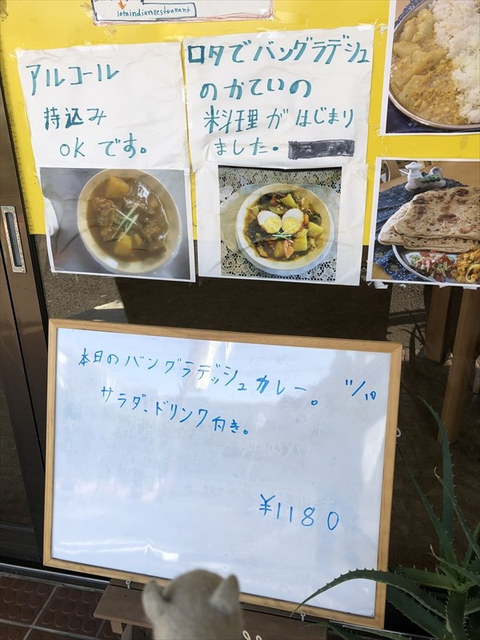 lotaindianrestaurant
アルコール
持込み
OKです。
ロタでバングラデシュ
のかていの
料理がはじまり
ました。
本日のバングラデッシュカレー。 11/10
サラダ、ドリンク付き。
¥1180